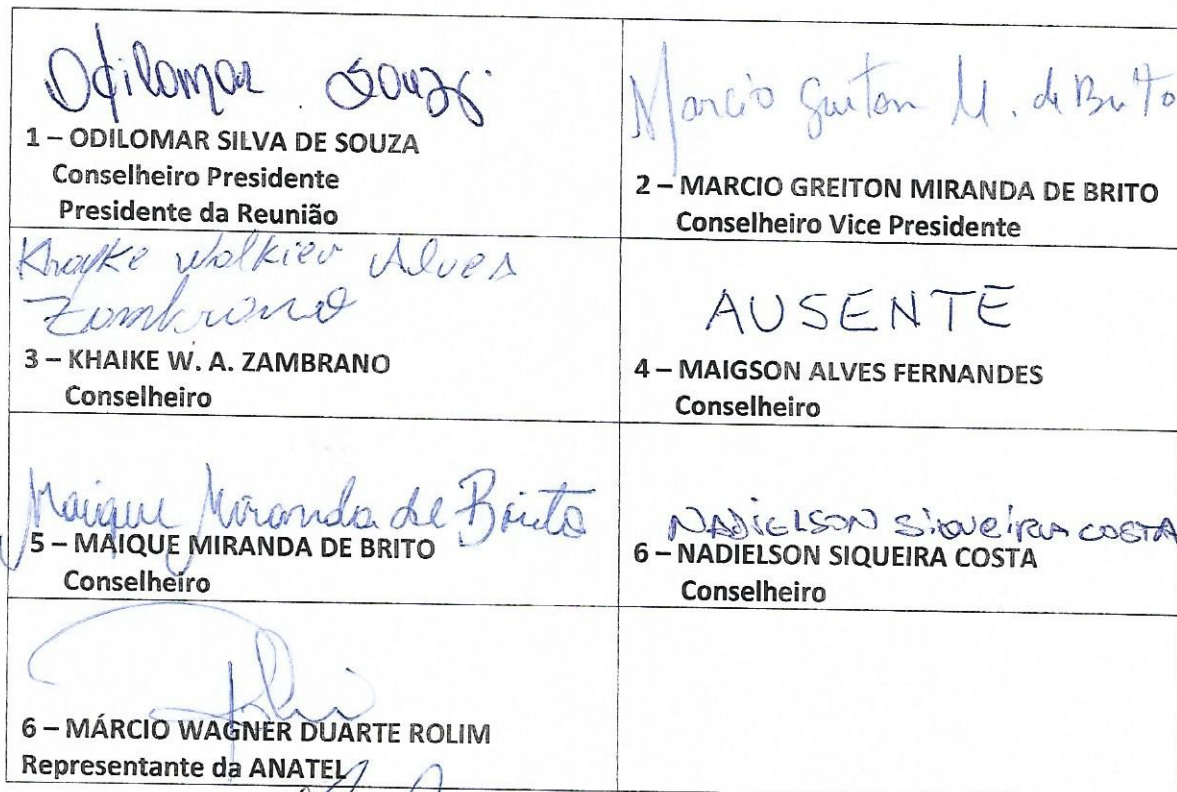 Odilomar Souza
1 – ODILOMAR SILVA DE SOUZA
Conselheiro Presidente
Presidente da Reunião
Marcio Greiton M. de Brito
2 – MARCIO GREITON MIRANDA DE BRITO
Conselheiro Vice Presidente
Khayke Walkiev Alves
Zambrano
3 – KHAIKE W. A. ZAMBRANO
Conselheiro
AUSENTE
4 – MAIGSON ALVES FERNANDES
Conselheiro
Maique Miranda de Brito
5 – MAIQUE MIRANDA DE BRITO
Conselheiro
NADIELSON SIQUEIRA COSTA
6 – NADIELSON SIQUEIRA COSTA
Conselheiro
6 – MÁRCIO WAGNER DUARTE ROLIM
Representante da ANATEL